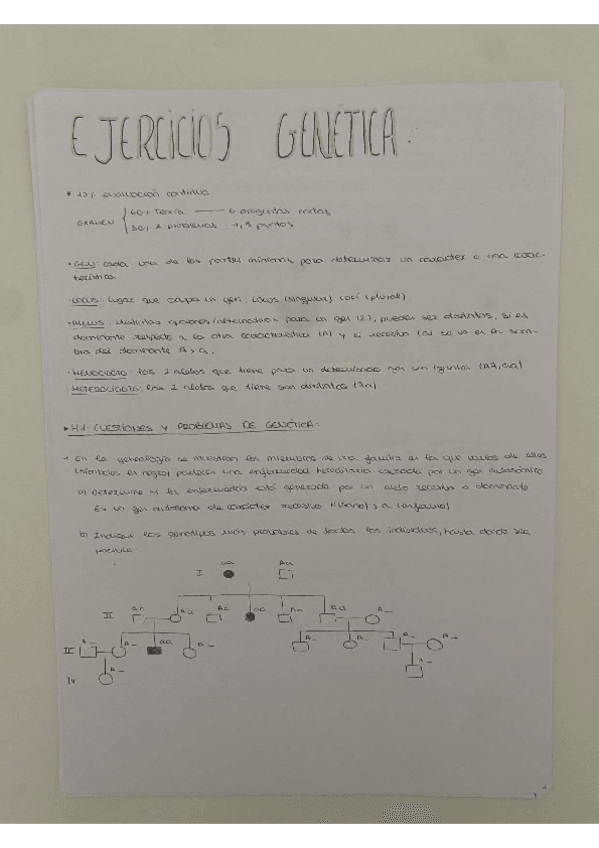 EJERCICIOS GENÉTICA.
* evaluación continua
EXAMEN { 60% Teoría —— 6 preguntas cortas
30% 2 problemas 1,5 puntos
· GEN: cada una de las partes mínimas para determinar un caracter o una carac-
terística.
· LOCUS: lugar que ocupa un gen. Locus (singular) Loci (plural).
distintas opciones/alternativas para un gen pueden ser distintos, si es
dominante respecto a la otra característica (A) y si recesivo (a) se va en
del dominante A > a.
los 2 alelos que tiene para un determinado gen son iguales (AA, aa)
los 2 alelos que tiene son distintos (Aa)
CUESTIONES Y PROBLEMAS DE GENÉTICA:
En la genealogía se muestran los miembros de una familia en la que varios de ellos
(símbolos en negro) padecen una enfermedad hereditaria causada por un gen autosómico
a) Determine si la enfermedad está generada por un alelo recesivo o dominante
Es un gen autosoma de carácter recesivo A (sano) > a (enfermo)
b) Indique los genotipos más probables de todos los individuos, hasta donde sea
posible.
I aa Aa
II Aa Aa Aa aa Aa Aa A_
III A_ A_ aa A_ A_ A_ A_ A_
IV A_ A_